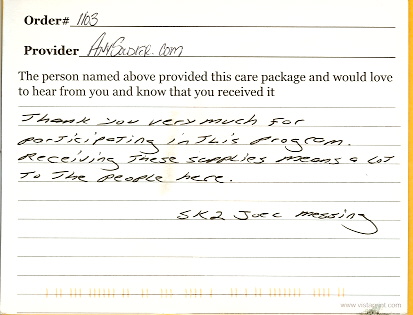 Order# 1103
Provider AnySoldier.com
The person named above provided this care package and would love
to hear from you and know that you received it
Thank you very much for
participating in this program.
Receiving these supplies means a lot
to the people here.
SK2 Joel Messing
www.vistaprint.com